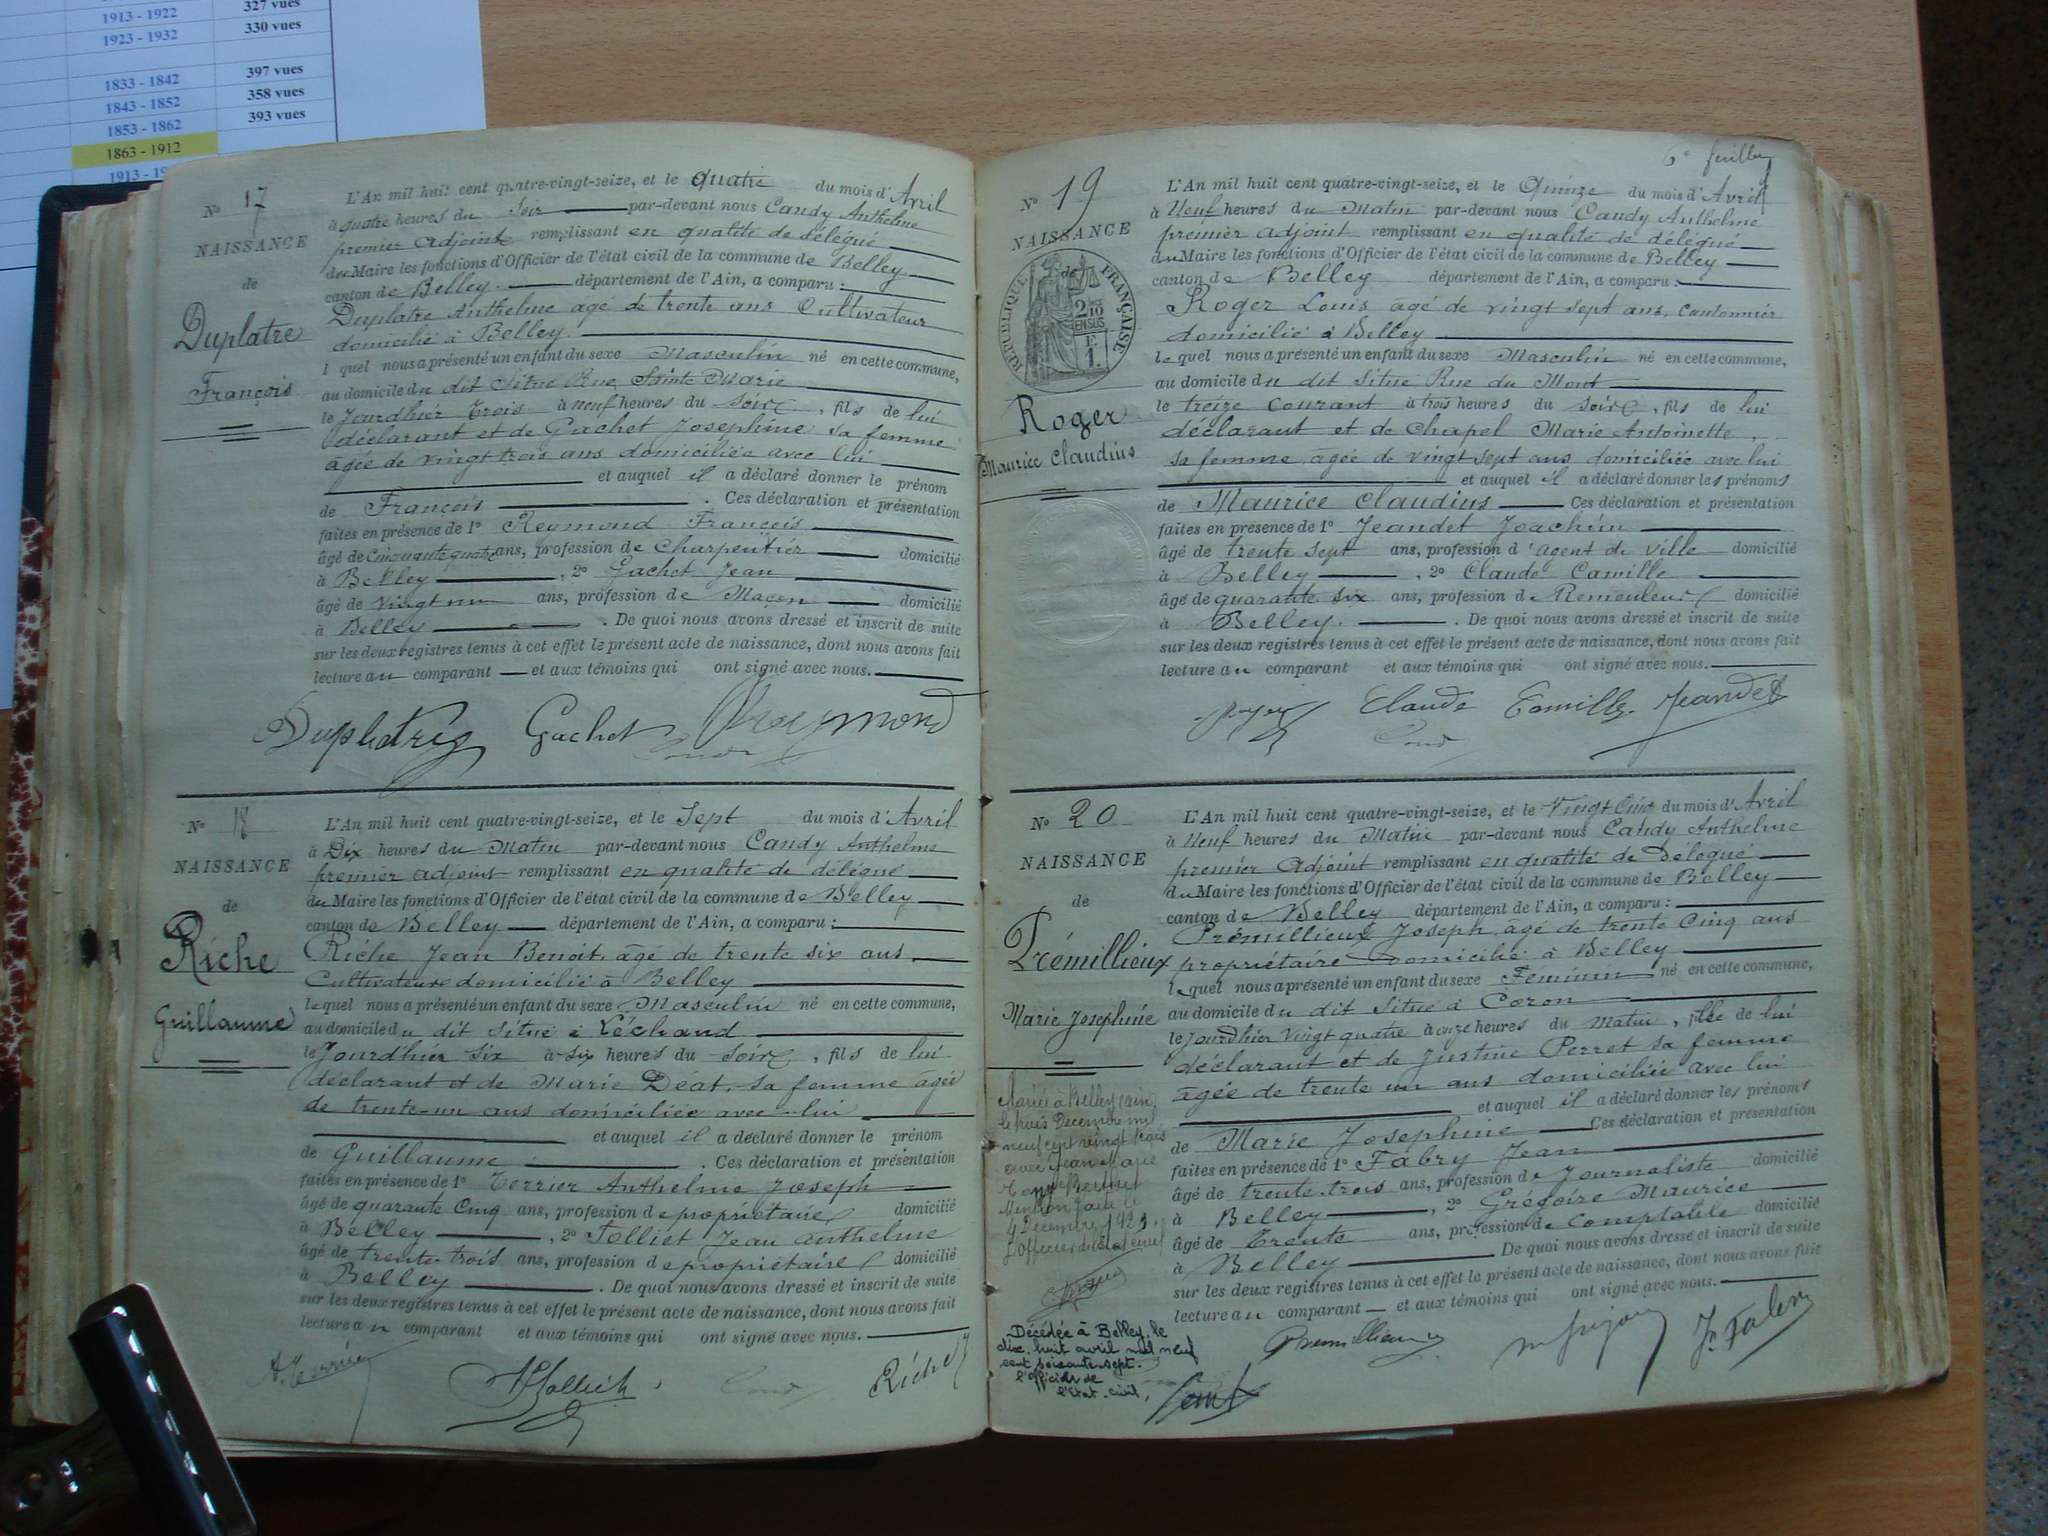 327 vues
1913 - 1922 330 vues
1923 - 1932
1833 - 1842 397 vues
1843 - 1852 358 vues
1853 - 1862 393 vues
1863 - 1912
1913 - 19
No 17
NAISSANCE
de
Duplatre
François
L'An mil huit cent quatre-vingt-seize, et le quatre du mois d'Avril
à quatre heures du Soir par-devant nous Candy Anthelme
premier adjoint remplissant en qualité de délégué
du Maire les fonctions d'Officier de l'état civil de la commune de Belley
canton de Belley département de l'Ain, a comparu :
Duplatre Anthelme agé de trente ans Cultivateur
domicilié à Belley.
l quel nous a présenté un enfant du sexe Masculin né en cette commune,
au domicile du dit Situé Rue Sainte Marie
le Jourdhier trois à neuf heures du Soir, fils de lui
déclarant et de Gachet Josephine sa femme
âgée de vingt trois ans domiciliée avec lui
et auquel il a déclaré donner le prénom
de François. Ces déclaration et présentation
faites en présence de 1° Reymond François
âgé de Cinquante quatre ans, profession de Charpentier domicilié
à Belley, 2° Gachet Jean
âgé de vingt un ans, profession de Maçon domicilié
à Belley. De quoi nous avons dressé et inscrit de suite
sur les deux registres tenus à cet effet le présent acte de naissance, dont nous avons fait
lecture au comparant et aux témoins qui ont signé avec nous.
Gachet Reymond
No 18
NAISSANCE
de
Riche
Guillaume
L'An mil huit cent quatre-vingt-seize, et le Sept du mois d'Avril
à Dix heures du Matin par-devant nous Candy Anthelme
premier adjoint remplissant en qualité de délégué
du Maire les fonctions d'Officier de l'état civil de la commune de Belley
canton de Belley département de l'Ain, a comparu :
Riche Jean Benoit, âgé de trente six ans,
Cultivateur domicilié à Belley
lequel nous a présenté un enfant du sexe Masculin né en cette commune,
au domicile du dit situé à Léchaud
le Jourdhier six à six heures du soir, fils de lui
déclarant et de Marie Déat, sa femme âgée
de trente-un ans domiciliée avec lui
et auquel il a déclaré donner le prénom
de Guillaume. Ces déclaration et présentation
faites en présence de 1° Terrier Anthelme Joseph
âgé de quarante Cinq ans, profession de propriétaire domicilié
à Belley, 2° Tolliet Jean Anthelme
âgé de trente-trois ans, profession de propriétaire domicilié
à Belley. De quoi nous avons dressé et inscrit de suite
sur les deux registres tenus à cet effet le présent acte de naissance, dont nous avons fait
lecture au comparant et aux témoins qui ont signé avec nous.
Riche
6e feuillet
No 19
NAISSANCE
de
RÉPUBLIQUE FRANÇAISE
2/10 EN SUS
F. 1.
Roger
Maurice Claudius
L'An mil huit cent quatre-vingt-seize, et le Quinze du mois d'Avril
à Neuf heures du Matin par-devant nous Candy Anthelme
premier adjoint remplissant en qualité de délégué
du Maire les fonctions d'Officier de l'état civil de la commune de Belley
canton de Belley département de l'Ain, a comparu :
Roger Louis âgé de vingt sept ans, Cantonnier
domicilié à Belley
lequel nous a présenté un enfant du sexe Masculin né en cette commune,
au domicile du dit Situé Rue du Mont
le treize courant à trois heures du Soir, fils de lui
déclarant et de Chapel Marie Antoinette,
sa femme, agée de vingt sept ans domiciliée avec lui
et auquel il a déclaré donner les prénoms
de Maurice Claudius Ces déclaration et présentation
faites en présence de 1° Jeandet Joachim
âgé de trente sept ans, profession d'agent de ville domicilié
à Belley, 2° Claude Camille
âgé de quarante six ans, profession de Remouleur domicilié
à Belley. De quoi nous avons dressé et inscrit de suite
sur les deux registres tenus à cet effet le présent acte de naissance, dont nous avons fait
lecture au comparant et aux témoins qui ont signé avec nous.
Claude Camille Jeandet
No 20
NAISSANCE
de
Prémillieux
Marie Josephine
L'An mil huit cent quatre-vingt-seize, et le Vingt Cinq du mois d'Avril
à Neuf heures du Matin par-devant nous Candy Anthelme
premier adjoint remplissant en qualité de Délégué
du Maire les fonctions d'Officier de l'état civil de la commune de Belley
canton de Belley département de l'Ain, a comparu :
Prémillieux Joseph, âgé de trente Cinq ans
propriétaire domicilié à Belley
lequel nous a présenté un enfant du sexe Feminin né en cette commune,
au domicile du dit Situé à Coron
le Jourdhier vingt quatre à onze heures du Matin, fille de lui
déclarant et de Justine Perret sa femme
âgée de trente un ans domiciliée avec lui
et auquel il a déclaré donner les prénoms
de Marie Josephine Ces déclaration et présentation
faites en présence de 1° Fabry Jean
âgé de trente-trois ans, profession de Journaliste domicilié
à Belley, 2° Grégoire Maurice
âgé de Trente ans, profession de Comptable domicilié
à Belley De quoi nous avons dressé et inscrit de suite
sur les deux registres tenus à cet effet le présent acte de naissance, dont nous avons fait
lecture au comparant et aux témoins qui ont signé avec nous.
Mariée à Belley (Ain)
le trois Décembre mil
neuf cent vingt trois
avec Jean Marie
Mention faite le
4 Décembre 1923.
l'officier de l'Etat civil
Décédée à Belley, le
dix-huit avril mil neuf
cent soixante-sept.
l'Officier de
l'Etat-civil,